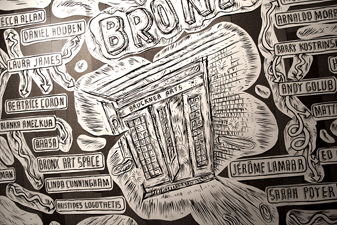 BRONX
ECCA ALLAN
DANIEL HOUBEN
LAURA JAMES
BEATRICE CORON
BLANKA AMEZKUA
BRONX ART SPACE
LINDA CUNNINGHAM
ARISTIDES LOGOTHETIS
BRUCKNER ARTS
ARNALDO MOR
BARRY KOSTRINS
ANDY GOLUB
MATT
ED
JEROME LAMAAR
SARAH POYER